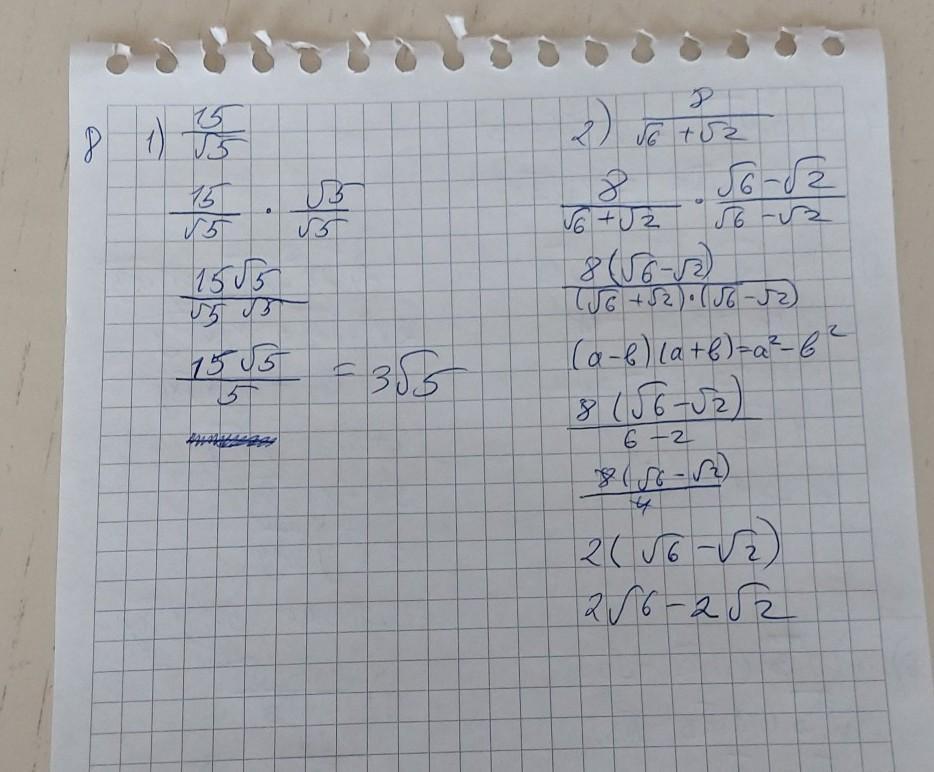 8 1) 15/√5
15/√5 · √5/√5
15√5/√5 √5
15√5/5 = 3√5
2) 8/√6 + √2
8/√6 + √2 · √6 - √2/√6 - √2
8(√6 - √2)/(√6 + √2)·(√6 - √2)
(a - в)(a + в) = a² - в²
8(√6 - √2)/6 - 2
8(√6 - √2)/4
2(√6 - √2)
2√6 - 2√2